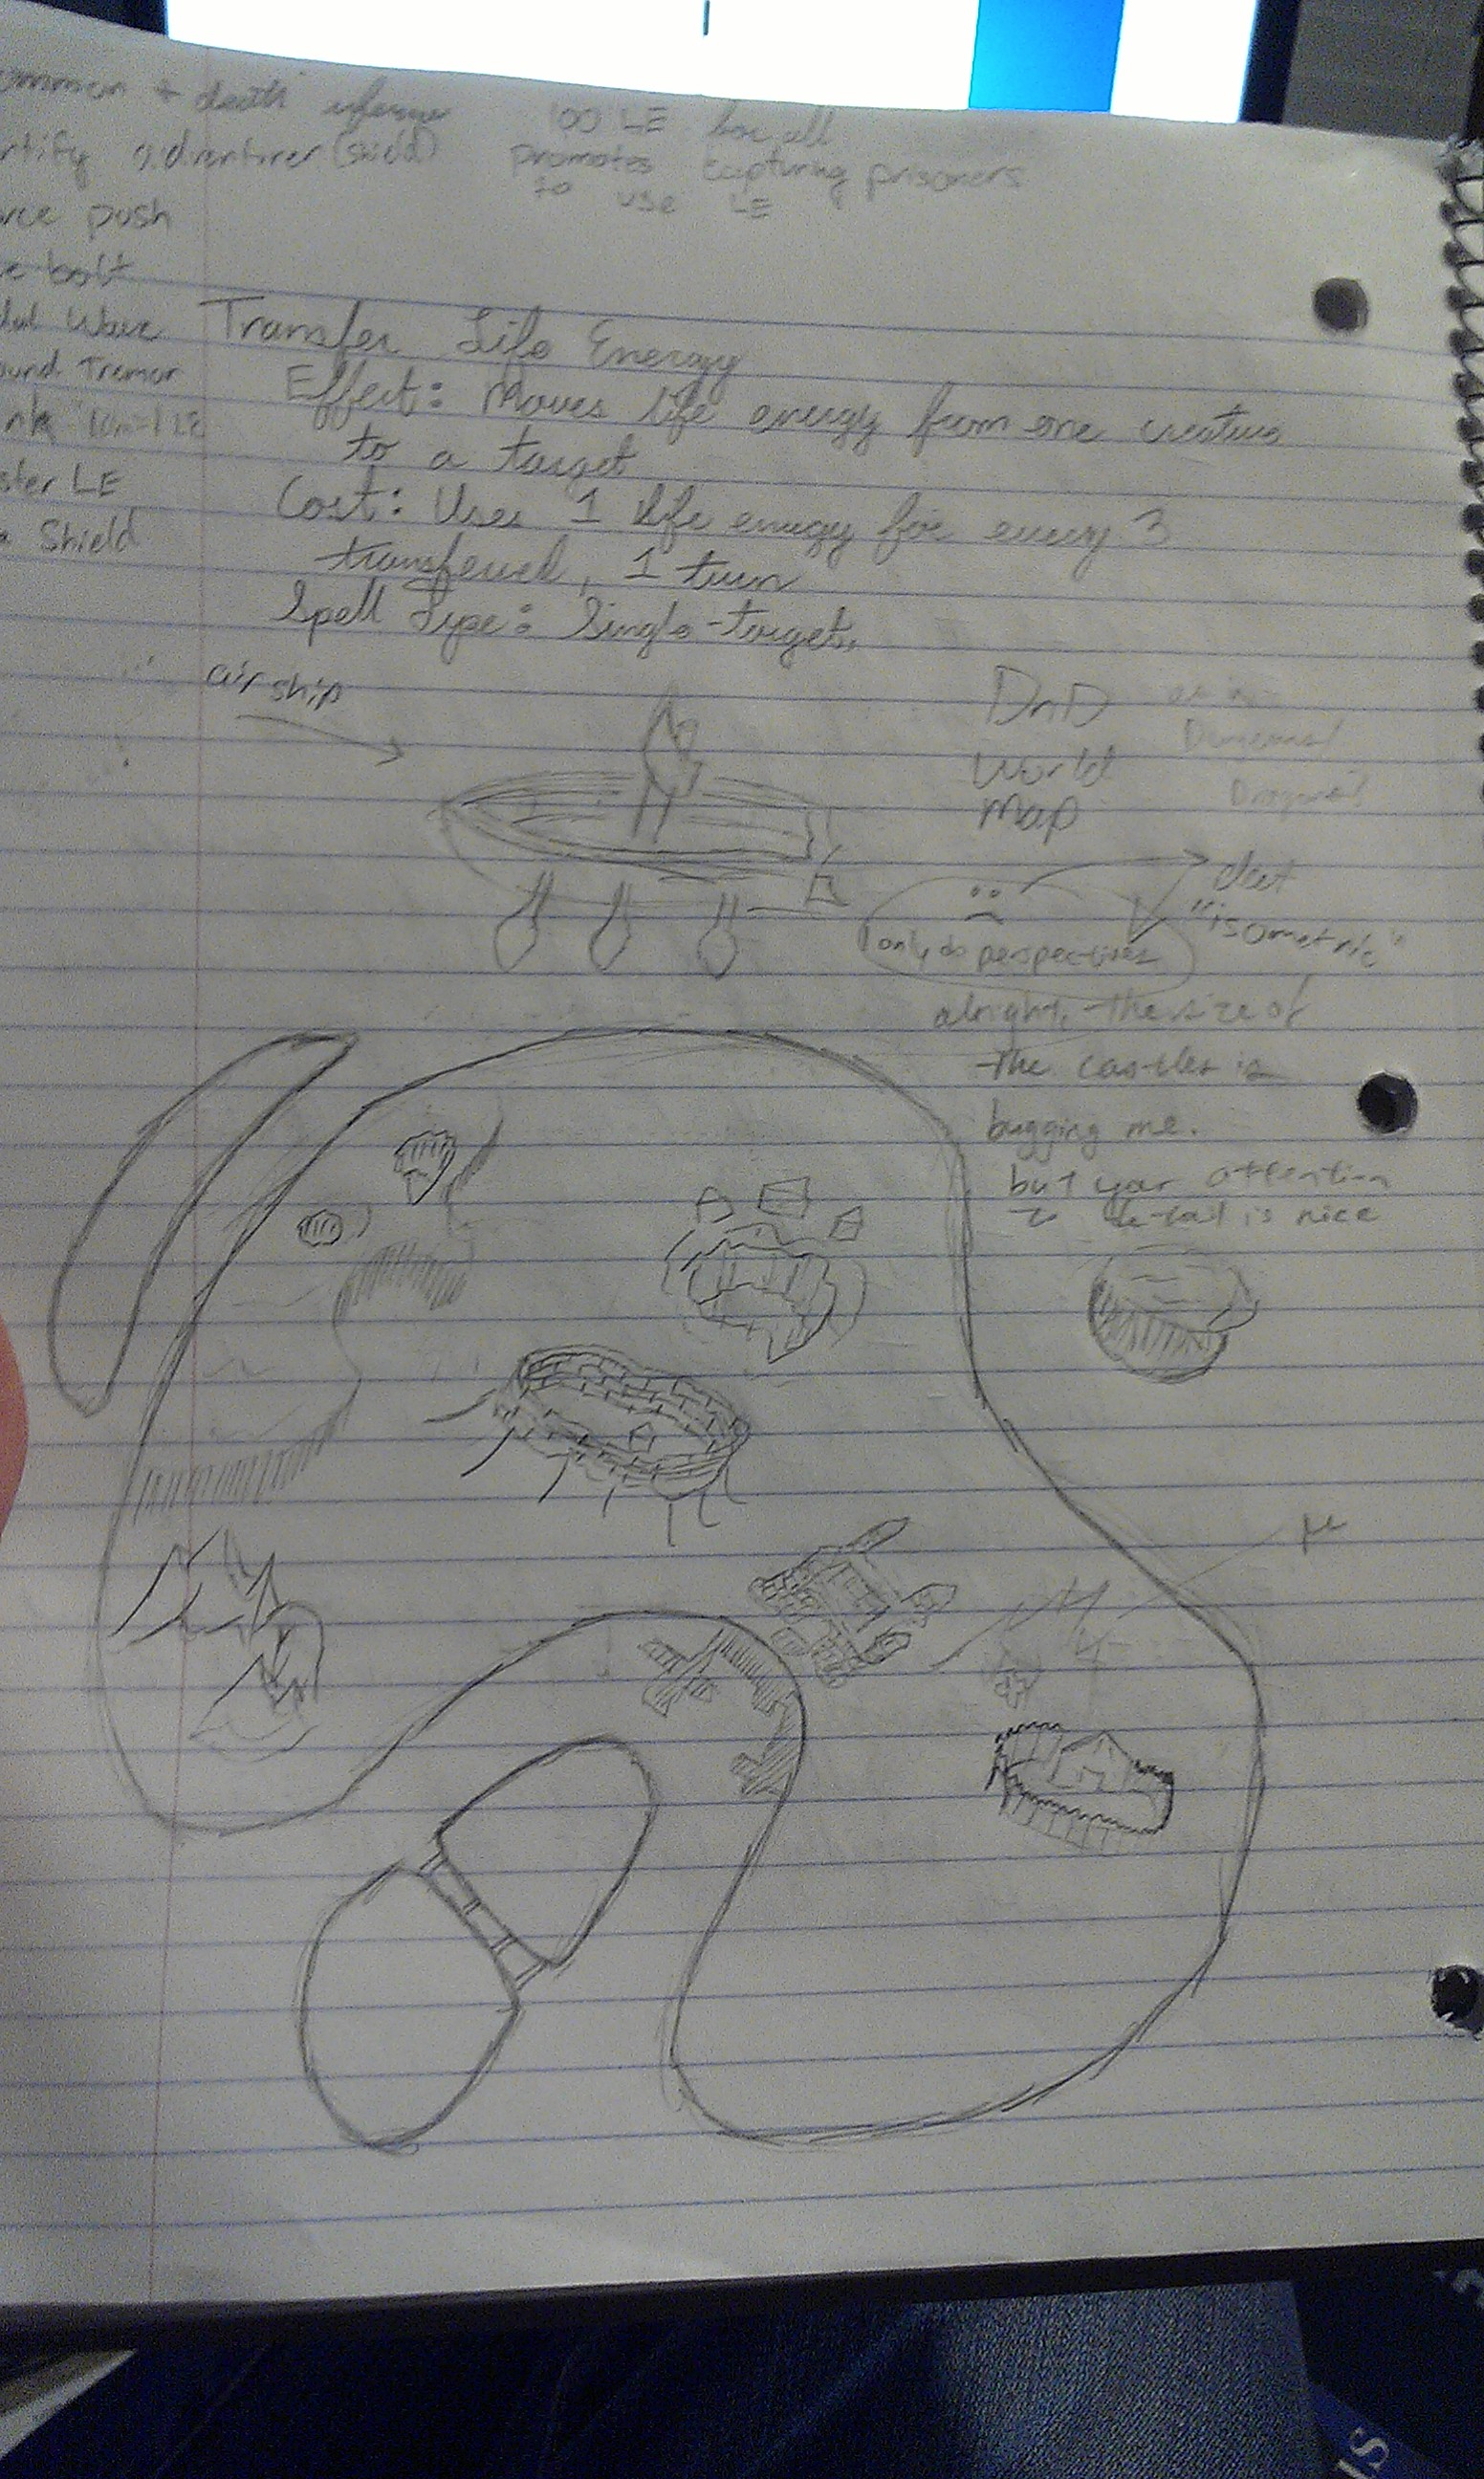 ommon + death
rtify adventurer (shield)
rce push
e bolt
Wave
ound Tremor
nk 10m=1LE
ster LE
a Shield
100 LE for all
promotes capturing prisoners
to use LE
Transfer Life Energy
Effect: Moves life energy from one creature
to a target
Cost: Uses 1 life energy for every 3
transferred, 1 turn
Spell Type: Single-target.
air ship
DnD
World
Map
Dungeons!
Dragons?
I only do perspectives
"isometric"
alright, the size of
the castles is
bugging me.
but your attention
to detail is nice